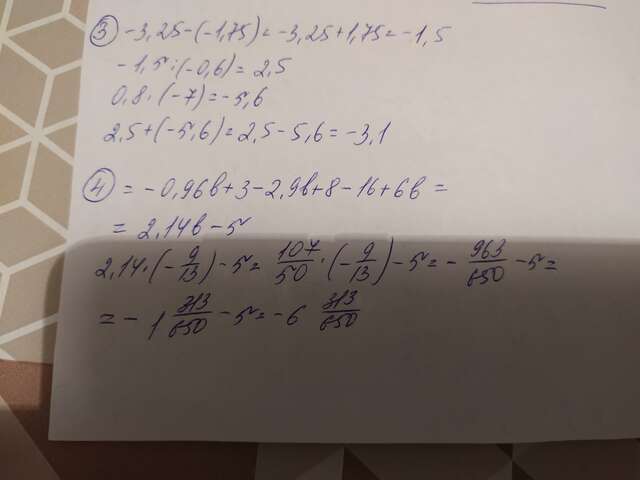 ③ -3,25-(-1,75)=-3,25+1,75=-1,5
-1,5:(-0,6)=2,5
0,8·(-7)=-5,6
2,5+(-5,6)=2,5-5,6=-3,1
④ =-0,96b+3-2,9b+8-16+6b=
=2,14b-5
2,14·(-9/13)-5=107/50·(-9/13)-5=-963/650-5=
=-1 313/650-5=-6 313/650